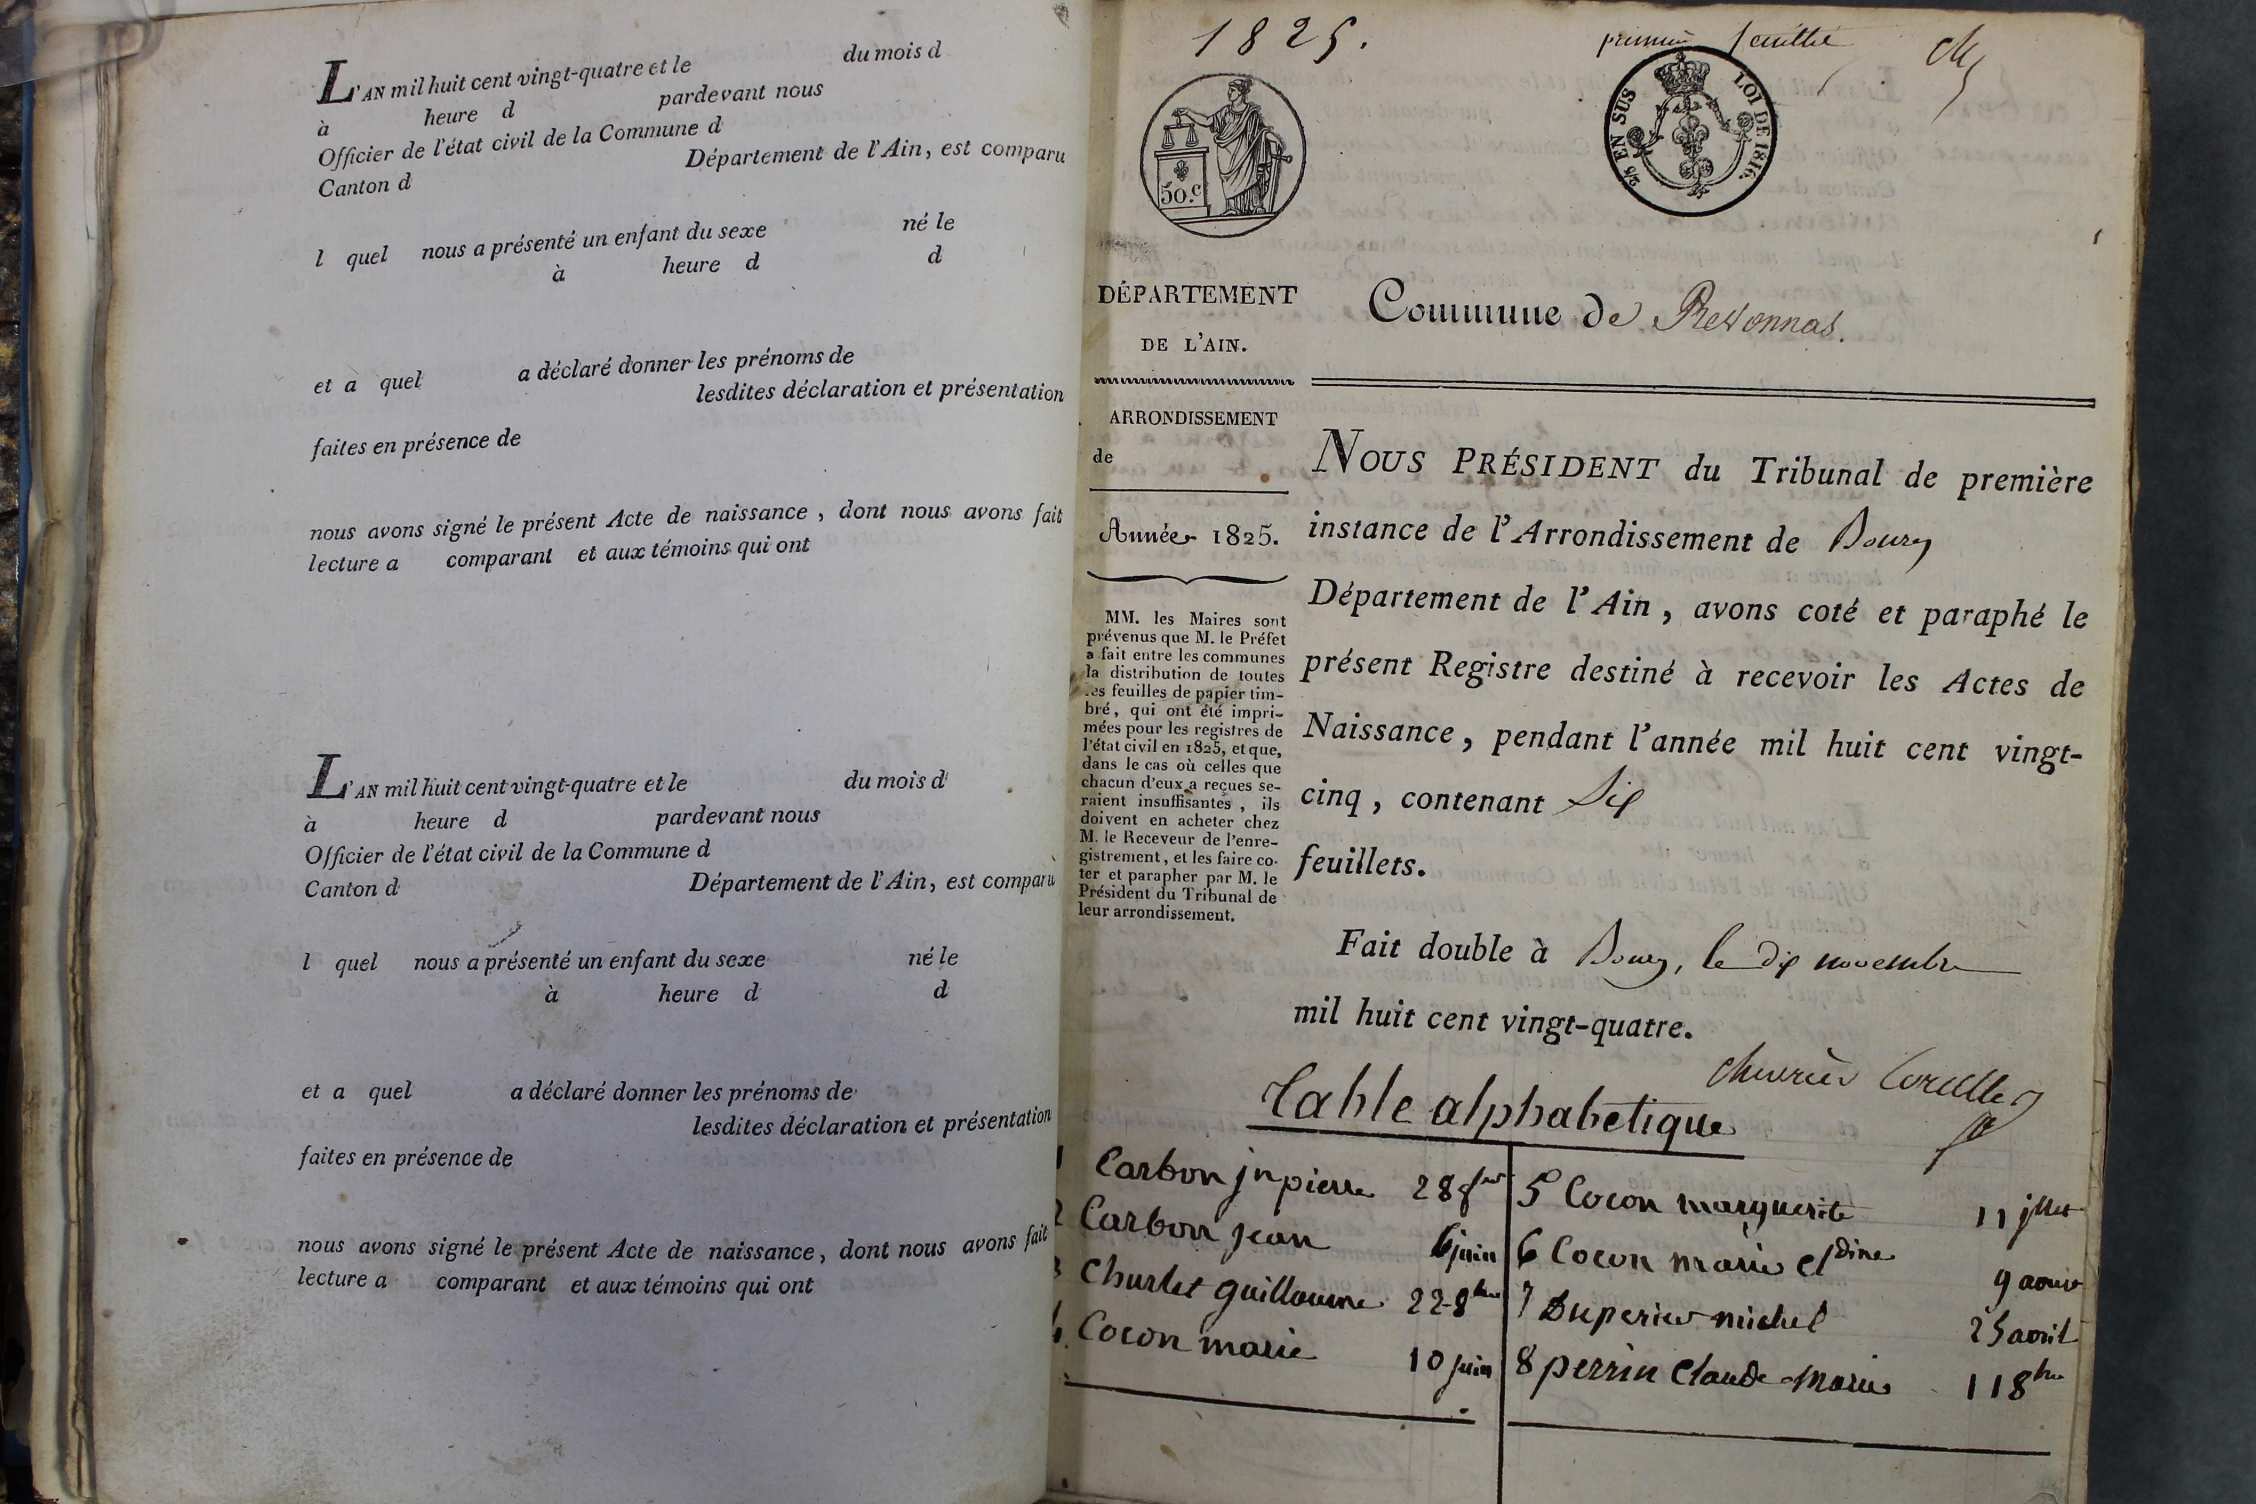 L'AN mil huit cent vingt-quatre et le du mois d
à heure d pardevant nous
Officier de l'état civil de la Commune d
Canton d Département de l'Ain, est comparu
l quel nous a présenté un enfant du sexe né le
à heure d d
et a quel a déclaré donner les prénoms de
lesdites déclaration et présentation
faites en présence de
nous avons signé le présent Acte de naissance, dont nous avons fait
lecture a comparant et aux témoins qui ont
L'AN mil huit cent vingt-quatre et le du mois d
à heure d pardevant nous
Officier de l'état civil de la Commune d
Canton d Département de l'Ain, est comparu
l quel nous a présenté un enfant du sexe né le
à heure d d
et a quel a déclaré donner les prénoms de
lesdites déclaration et présentation
faites en présence de
nous avons signé le présent Acte de naissance, dont nous avons fait
lecture a comparant et aux témoins qui ont
1825.
premier feuillet
50.c
EN SUS LOI DE 1816.
DÉPARTEMENT
DE L'AIN.
Commune de Revonnas.
ARRONDISSEMENT
de
Année 1825.
MM. les Maires sont
prévenus que M. le Préfet
a fait entre les communes
la distribution de toutes
les feuilles de papier tim-
bré, qui ont été impri-
mées pour les registres de
l'état civil en 1825, et que,
dans le cas où celles que
chacun d'eux a reçues se-
raient insuffisantes, ils
doivent en acheter chez
M. le Receveur de l'enre-
gistrement, et les faire co-
ter et parapher par M. le
Président du Tribunal de
leur arrondissement.
NOUS PRÉSIDENT du Tribunal de première
instance de l'Arrondissement de Bourg
Département de l'Ain, avons coté et paraphé le
présent Registre destiné à recevoir les Actes de
Naissance, pendant l'année mil huit cent vingt-
cinq, contenant Six
feuillets.
Fait double à Bourg, le dix novembre
mil huit cent vingt-quatre.
Table alphabetique
1 Carbon jn pierre 28 fer
2 Carbon jean 6 juin
3 Churlet guillaume 22 8bre
4 Cocon marie 10 juin
5 Cocon marguerite 11 jllet
6 Cocon marie cldine 9 aout
7 Duperier michel 25 avril
8 perrin Claude marie 11 8bre